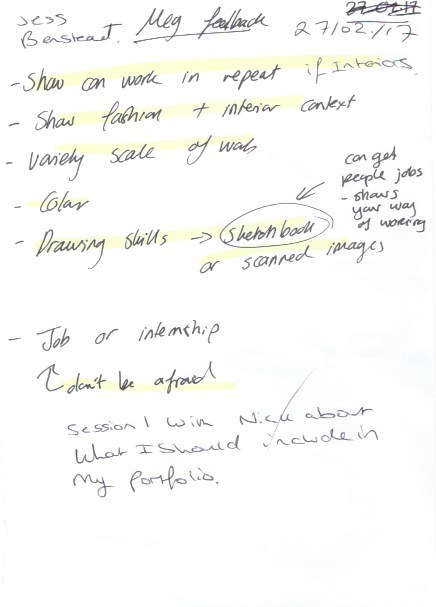 Jess
Meg feedback
27/02/17
- Show can work in repeat if Interiors.
- Show fashion + interior context
- Variety scale of work
- Colour
- Drawing skills -> sketchbook
or scanned images
can get
people jobs
- shows
your way
of working
- Job or internship
don't be afraid
Session 1 with Nick about
What I should include in
My Portfolio.